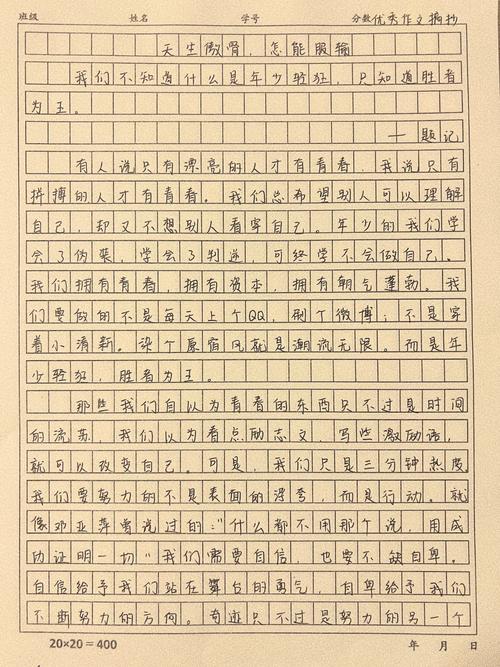 班级 姓名 学号 分数优秀作文摘抄
天生傲骨，怎能服输
我们不知道什么是年少轻狂，只知道胜者
为王。
——题记
有人说只有漂亮的人才有青春，我说只有
拼搏的人才有青春。我们总希望别人可以理解
自己，却又不想别人看穿自己。年少的我们学
会了伪装，学会了判逆，可终学不会做自己。
我们拥有青春，拥有资本，拥有朝气蓬勃。我
们要做的不是每天上个QQ，刷个微博；不是穿
着小清新。染个原宿风就是潮流无限。而是年
少轻狂，胜者为王。
那些我们自以为青春的东西只不过是时间
的流苏，我们以为看点励志文，写些激励语，
就可以改变自己。可是，我们只是三分钟热度。
我们要努力的不是表面的浮夸，而是行动。就
像邓亚萍曾说过的："什么都不用那个说，用成
功证明一切"我们需要自信，也要不缺自卑。
自信给予我们站在舞台的勇气，自卑给予我们
不断努力的方向。奇迹只不过是努力的另一个
20×20=400 年 月 日